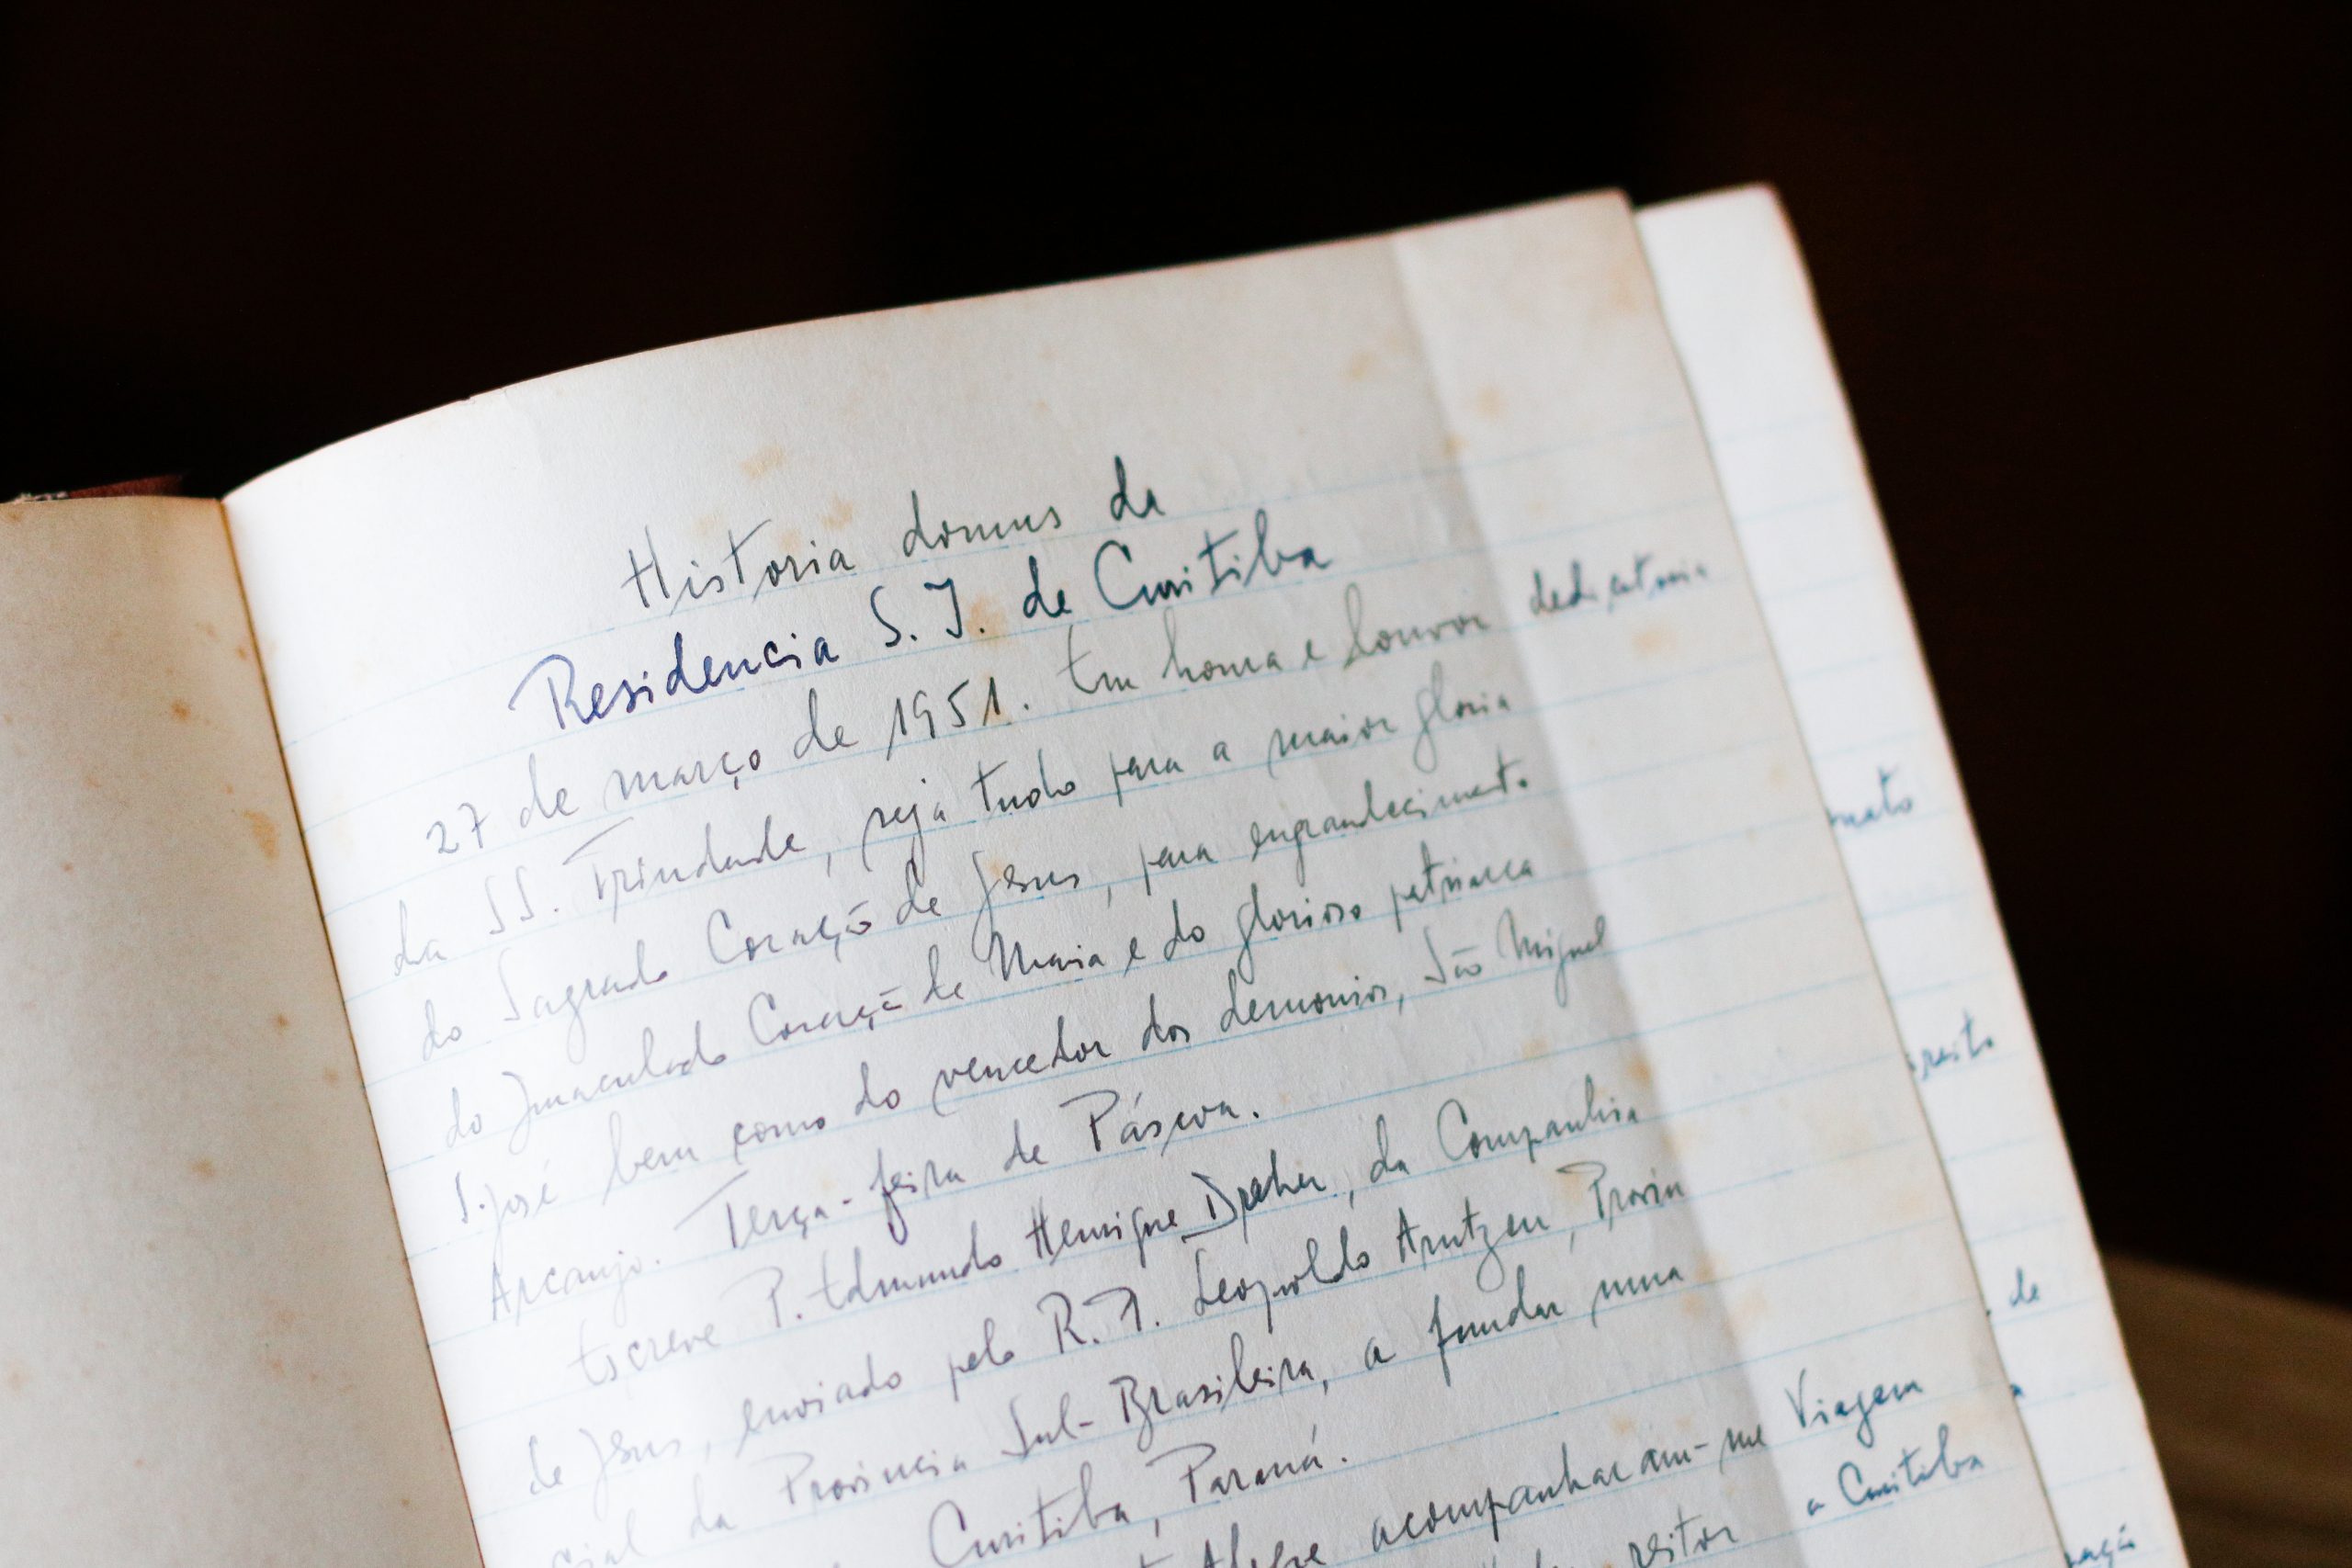 Historia domus da
Residencia S. J. de Curitiba
27 de março de 1951. Em honra e louvor dedicatoria
da SS. Trindade, seja tudo para a maior gloria
do Sagrado Coração de Jesus, para engrandecimento
do Imaculado Coração de Maria e do glorioso patriarca
S. José bem como do vencedor dos demonios, São Miguel
Arcanjo. Terça-feira de Páscoa.
Escreve P. Edmundo Henrique Dreher, da Companhia
de Jesus, enviado pelo R. P. Leopoldo Arntzen, Provin
cial da Provincia Sul-Brasileira, a fundar uma
Curitiba, Paraná.
Alegre acompanharam-me Viagem
reitor a Curitiba
de